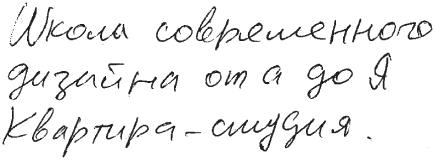 Школа современного
дизайна от а до Я
Квартира-студия.